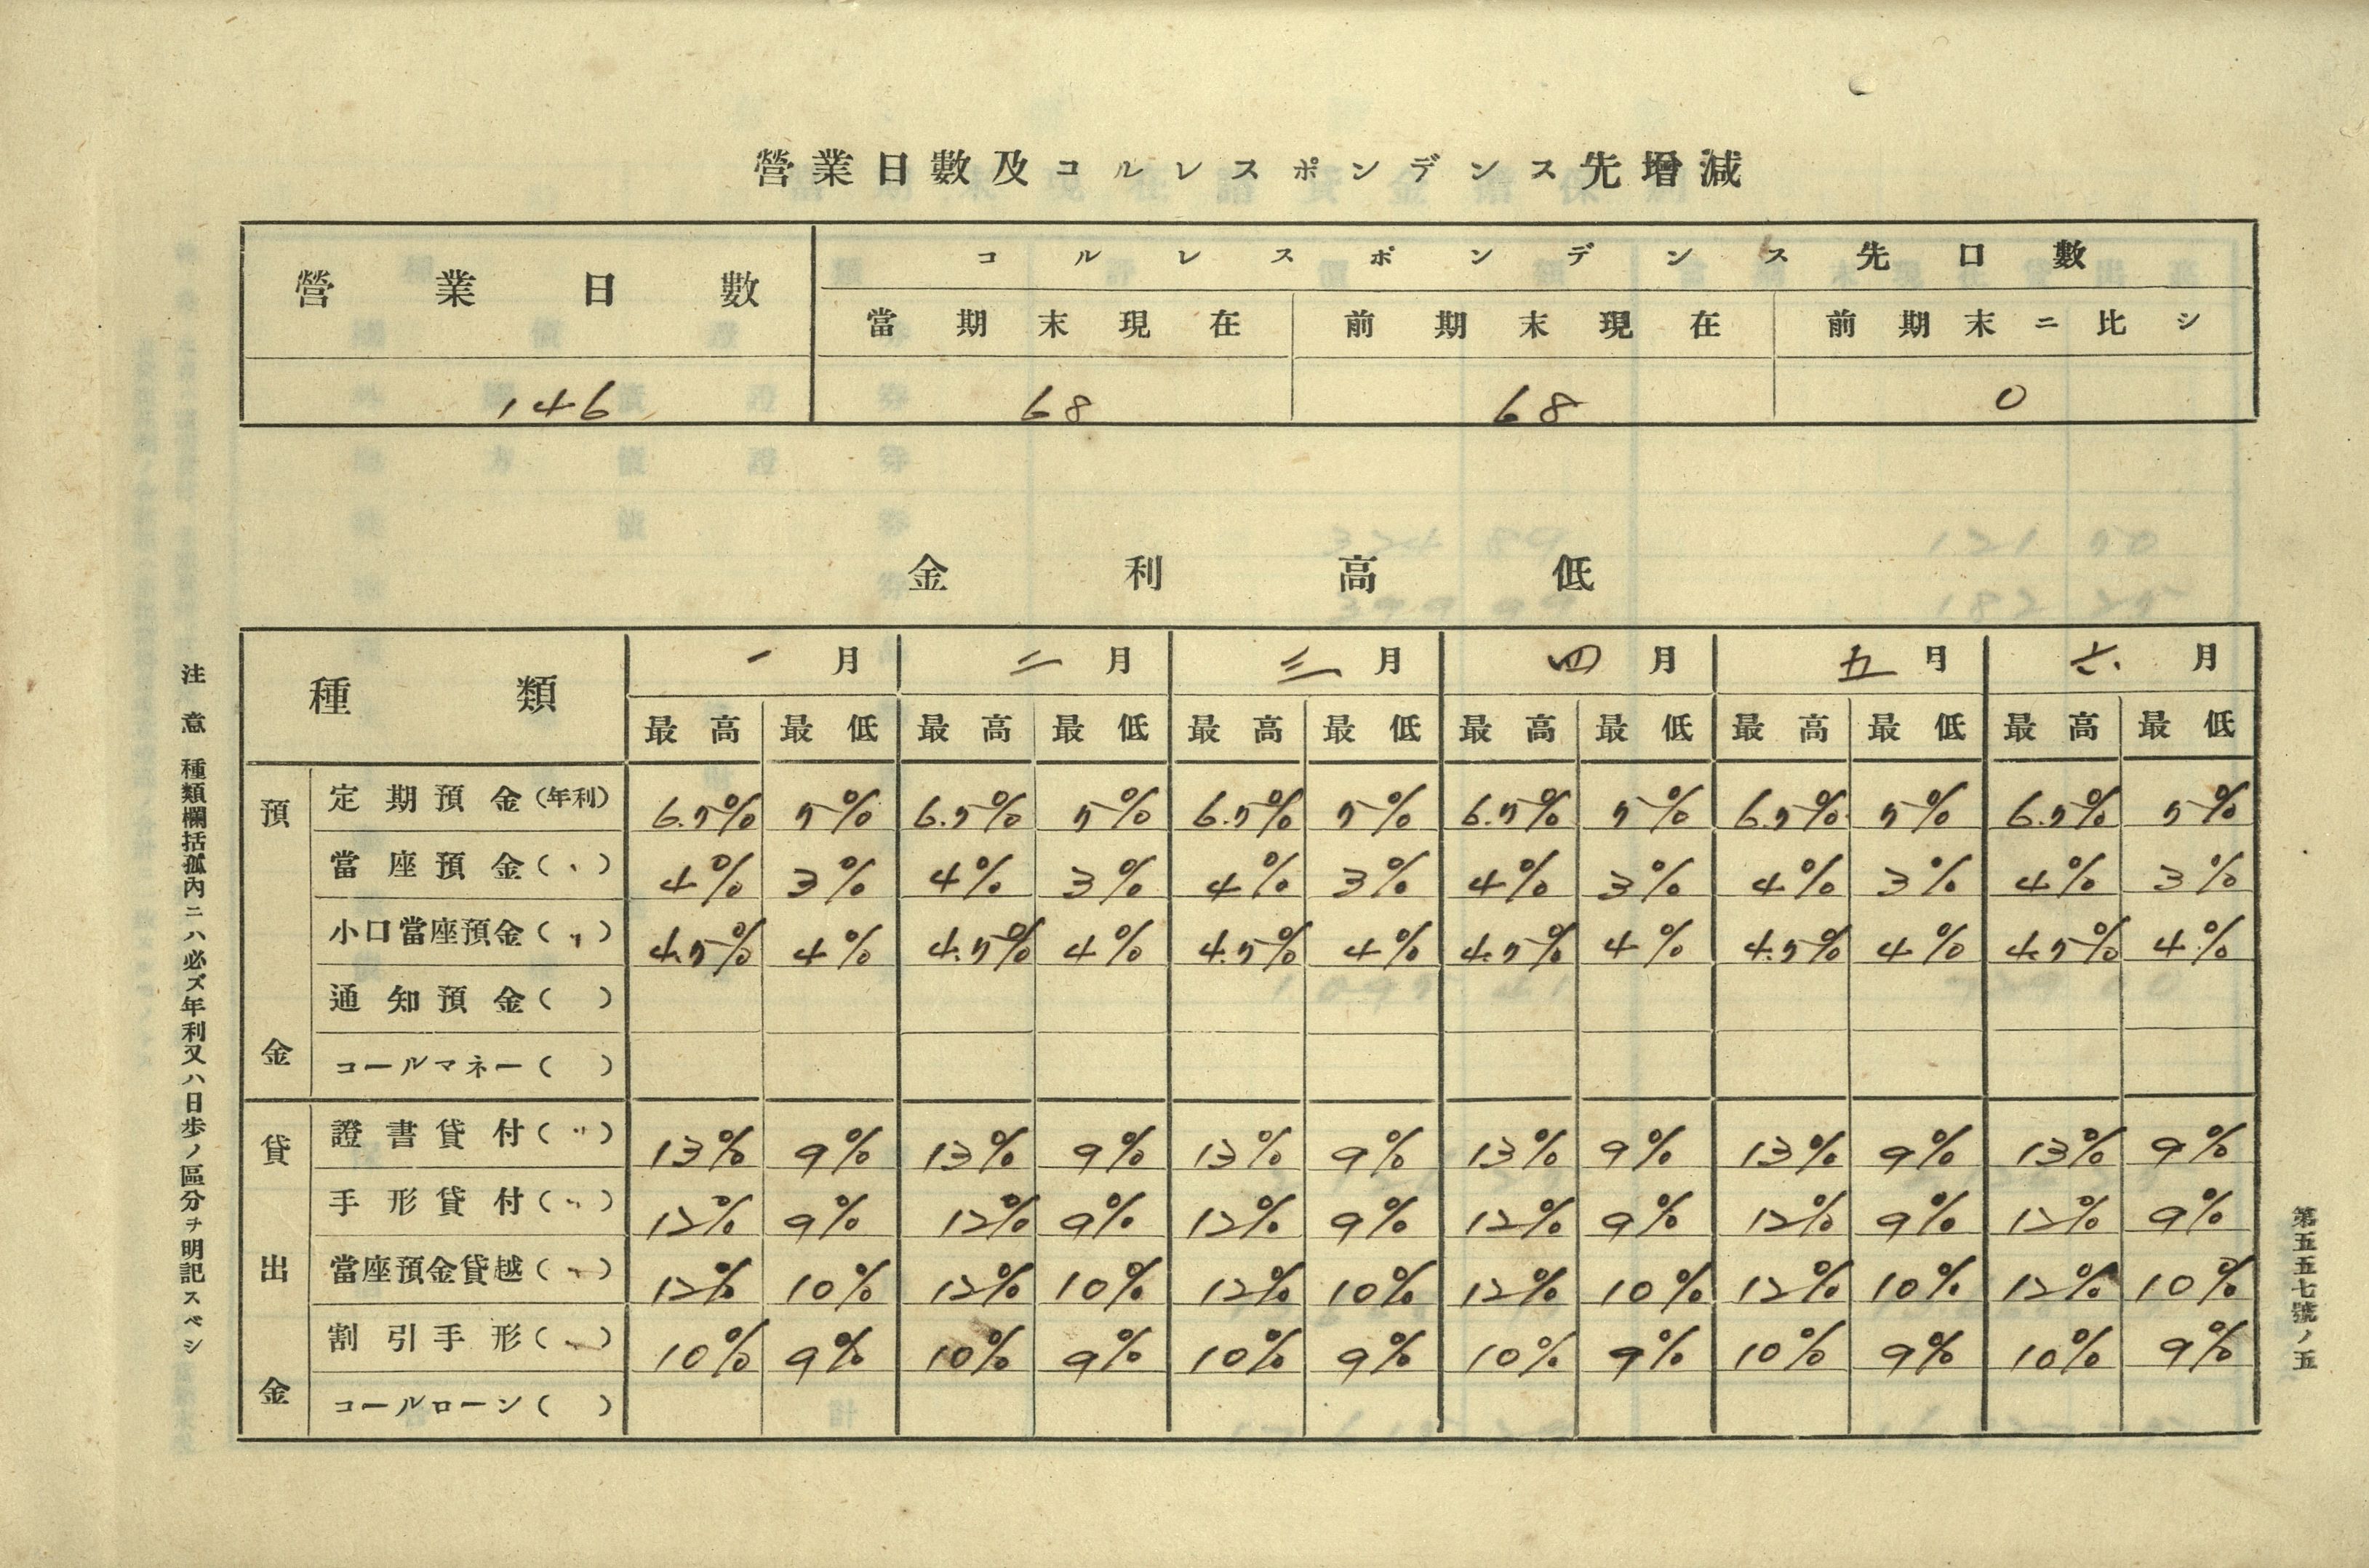 營業日數及コルレスポンデンス先增減
營業日數 コルレスポンデンス先口數
當期末現在 前期末現在 前期末ニ比シ
146 68 68 0
金利高低
種類 一月 二月 三月 四月 五月 六月
最高 最低 最高 最低 最高 最低 最高 最低 最高 最低 最高 最低
預金
定期預金(年利) 6.5% 5% 6.5% 5% 6.5% 5% 6.5% 5% 6.5% 5% 6.5% 5%
當座預金(〃) 4% 3% 4% 3% 4% 3% 4% 3% 4% 3% 4% 3%
小口當座預金(〃) 4.5% 4% 4.5% 4% 4.5% 4% 4.5% 4% 4.5% 4% 4.5% 4%
通知預金( )
コールマネー( )
貸出金
證書貸付(〃) 13% 9% 13% 9% 13% 9% 13% 9% 13% 9% 13% 9%
手形貸付(〃) 12% 9% 12% 9% 12% 9% 12% 9% 12% 9% 12% 9%
當座預金貸越(〃) 12% 10% 12% 10% 12% 10% 12% 10% 12% 10% 12% 10%
割引手形(〃) 10% 9% 10% 9% 10% 9% 10% 9% 10% 9% 10% 9%
コールローン( )
注意 種類欄括孤內ニハ必ズ年利又ハ日歩ノ區分ヲ明記スベシ
第五五七號ノ五